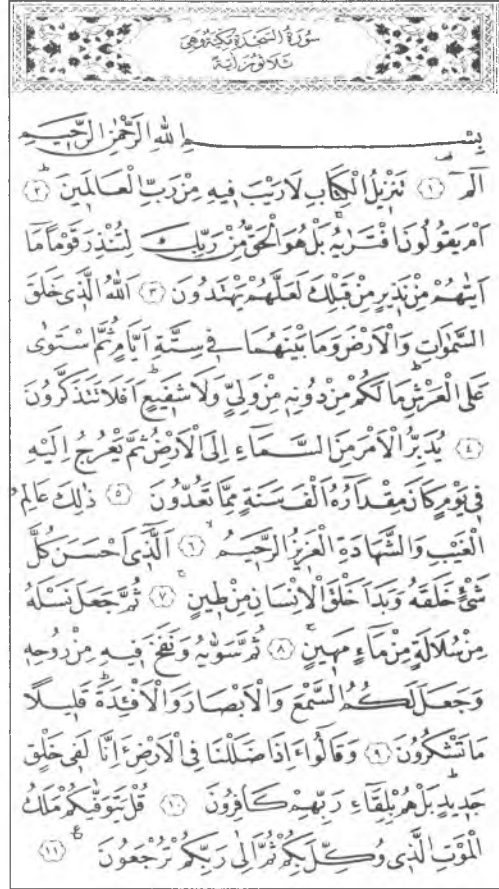 سُورَةُ السَّجْدَةِ مَكِّيَّةٌ وَهِيَ
ثَلَاثُونَ اٰيَةً
بِسْمِ اللهِ الرَّحْمٰنِ الرَّحِيمِ
الٓمٓ ﴿١﴾ تَنْزِيلُ الْكِتَابِ لَارَيْبَ فِيهِ مِنْ رَبِّ الْعَالَمِينَ ﴿٢﴾
اَمْ يَقُولُونَ افْتَرٰيهُ بَلْ هُوَ الْحَقُّ مِنْ رَبِّكَ لِتُنْذِرَ قَوْمًا مَٓا
اَتٰيهُمْ مِنْ نَذِيرٍ مِنْ قَبْلِكَ لَعَلَّهُمْ يَهْتَدُونَ ﴿٣﴾ اَللهُ الَّذِى خَلَقَ
السَّمٰوَاتِ وَالْاَرْضَ وَمَا بَيْنَهُمَا فِى سِتَّةِ اَيَّامٍ ثُمَّ اسْتَوٰى
عَلَى الْعَرْشِ مَا لَكُمْ مِنْ دُونِهِ مِنْ وَلِىٍّ وَلَا شَفِيعٍ اَفَلَا تَتَذَكَّرُونَ
﴿٤﴾ يُدَبِّرُ الْاَمْرَ مِنَ السَّمَاءِ اِلَى الْاَرْضِ ثُمَّ يَعْرُجُ اِلَيْهِ
فِى يَوْمٍ كَانَ مِقْدَارُهُٓ اَلْفَ سَنَةٍ مِمَّا تَعُدُّونَ ﴿٥﴾ ذٰلِكَ عَالِمُ
الْغَيْبِ وَالشَّهَادَةِ الْعَزِيزُ الرَّحِيمُ ﴿٦﴾ اَلَّذِٓى اَحْسَنَ كُلَّ
شَىْءٍ خَلَقَهُ وَبَدَاَ خَلْقَ الْاِنْسَانِ مِنْ طِينٍ ﴿٧﴾ ثُمَّ جَعَلَ نَسْلَهُ
مِنْ سُلَالَةٍ مِنْ مَاءٍ مَهِينٍ ﴿٨﴾ ثُمَّ سَوّٰيهُ وَنَفَخَ فِيهِ مِنْ رُوحِهِ
وَجَعَلَ لَكُمُ السَّمْعَ وَالْاَبْصَارَ وَالْاَفْئِدَةَ قَلِيلًا
مَا تَشْكُرُونَ ﴿٩﴾ وَقَالُٓوا ءَاِذَا ضَلَلْنَا فِى الْاَرْضِ ءَاِنَّا لَفِى خَلْقٍ
جَدِيدٍ بَلْ هُمْ بِلِقَاءِ رَبِّهِمْ كَافِرُونَ ﴿١٠﴾ قُلْ يَتَوَفّٰيكُمْ مَلَكُ
الْمَوْتِ الَّذِى وُكِّلَ بِكُمْ ثُمَّ اِلٰى رَبِّكُمْ تُرْجَعُونَ ع ﴿١١﴾